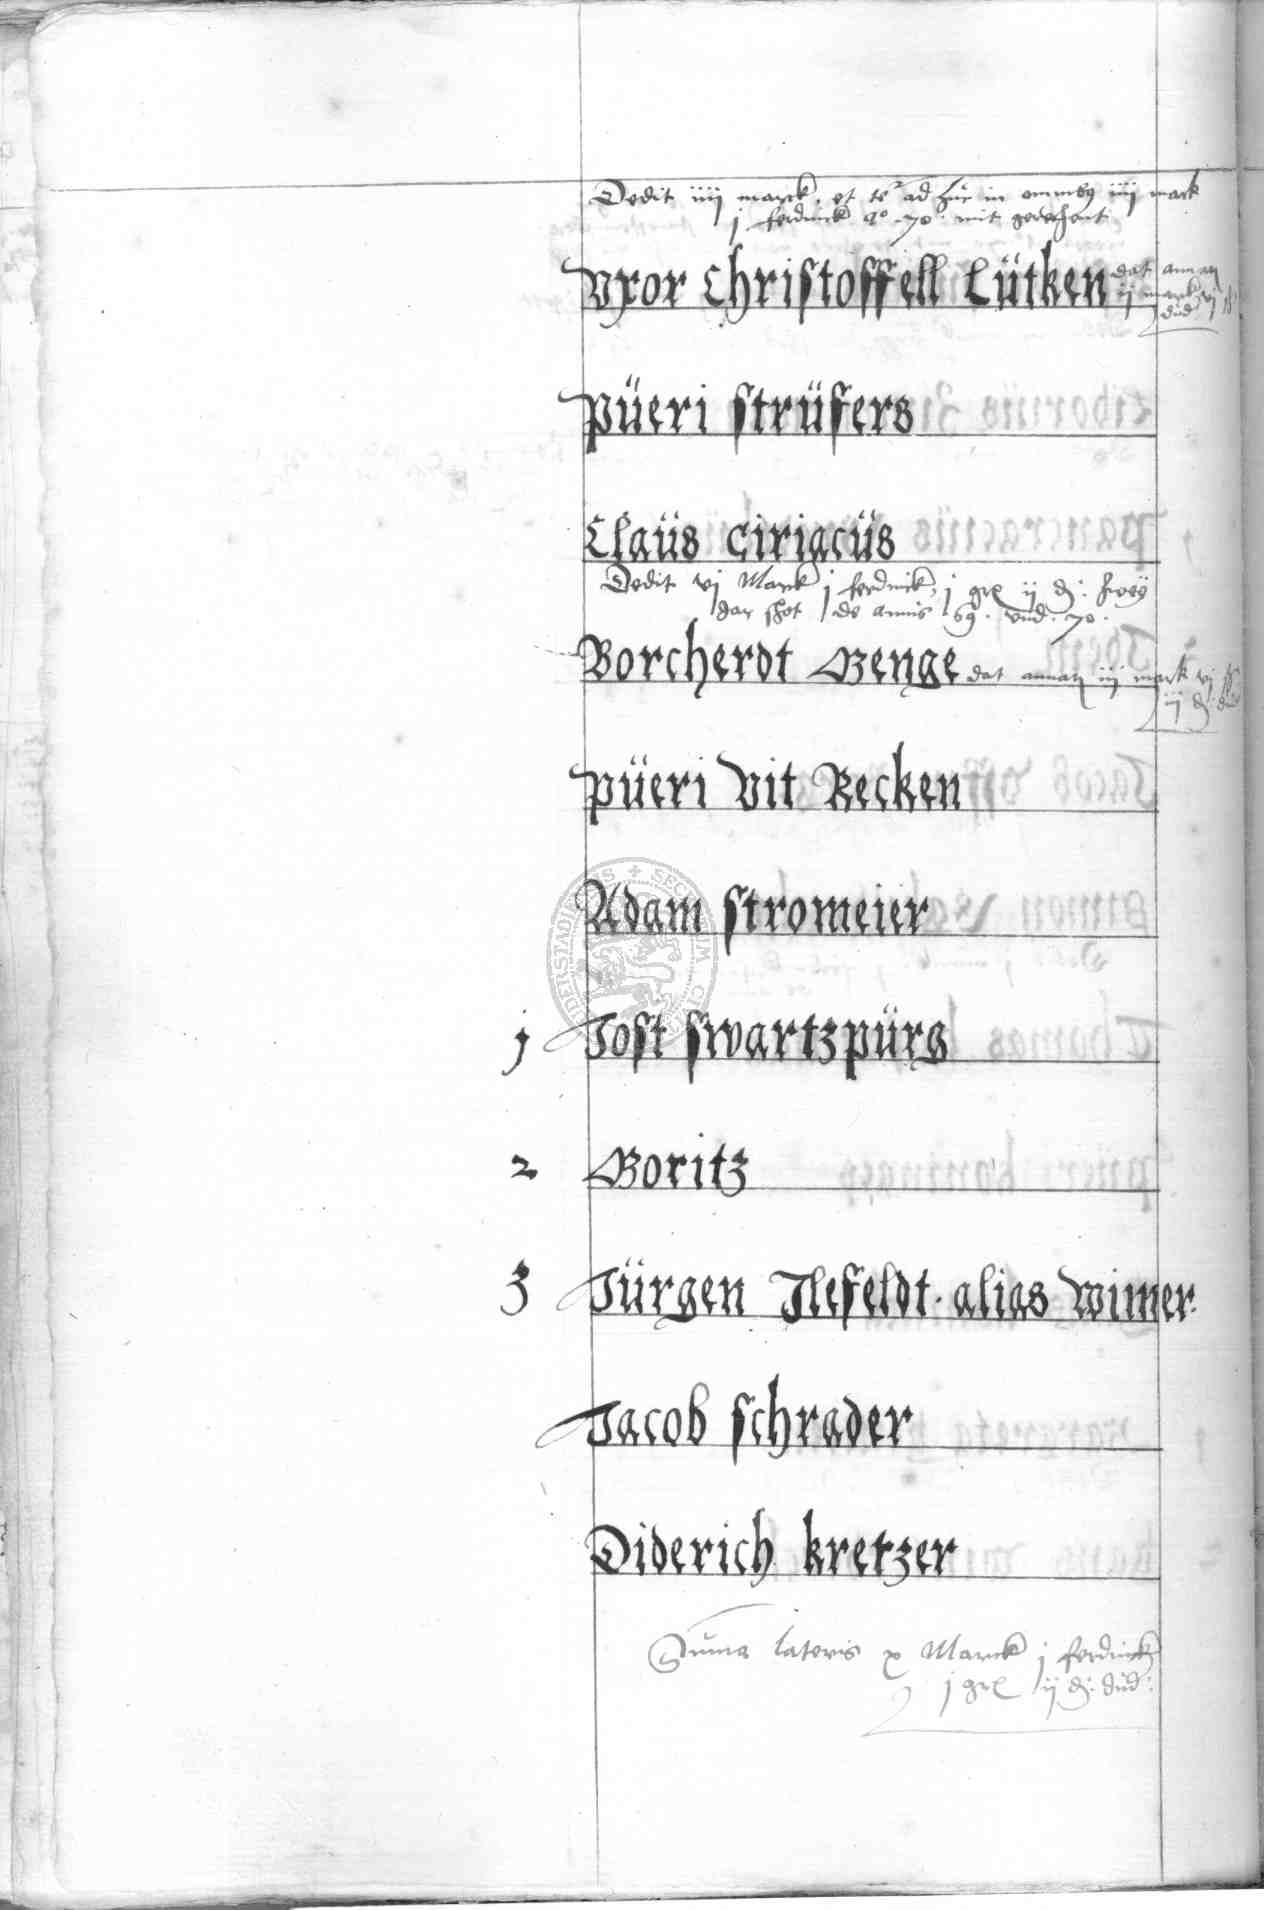 Dedit iiij marck, et te² ad huc in omnibus iiij mark
j ferdinck aº 70. mit gerechent
Vxor Christoffell Lütken dat annaz
ij marck vj
düd
Püeri strüfers
Claüs Ciriacüs
Dedit vj Marck j ferdinck, j grl ij d:
dar shot de annis 69. vnd. 70.
Borcherdt Menge dat annaz iij mark vj
ij d:
Püeri Vit Recken
Adam stromeier
j Jost swartzpürg
2 Moritz
3 Jürgen Ilefeldt. alias wimer.
Jacob schrader
Diderich kretzer
Suma lateris x Marck j ferdinck
j grl ij d: düd: